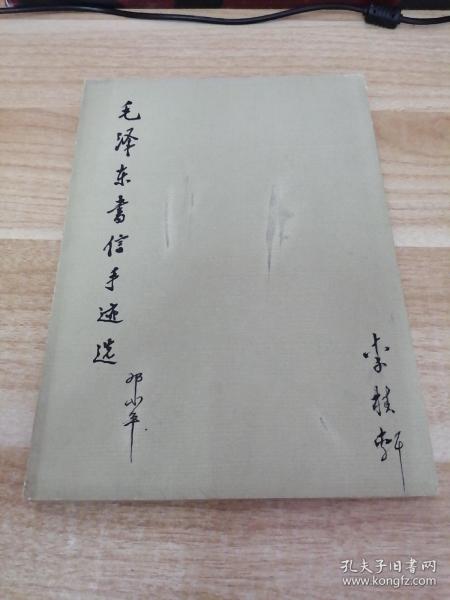 毛泽东书信手迹选
邓小平
李
轩
孔夫子旧书网
www.kongfz.com